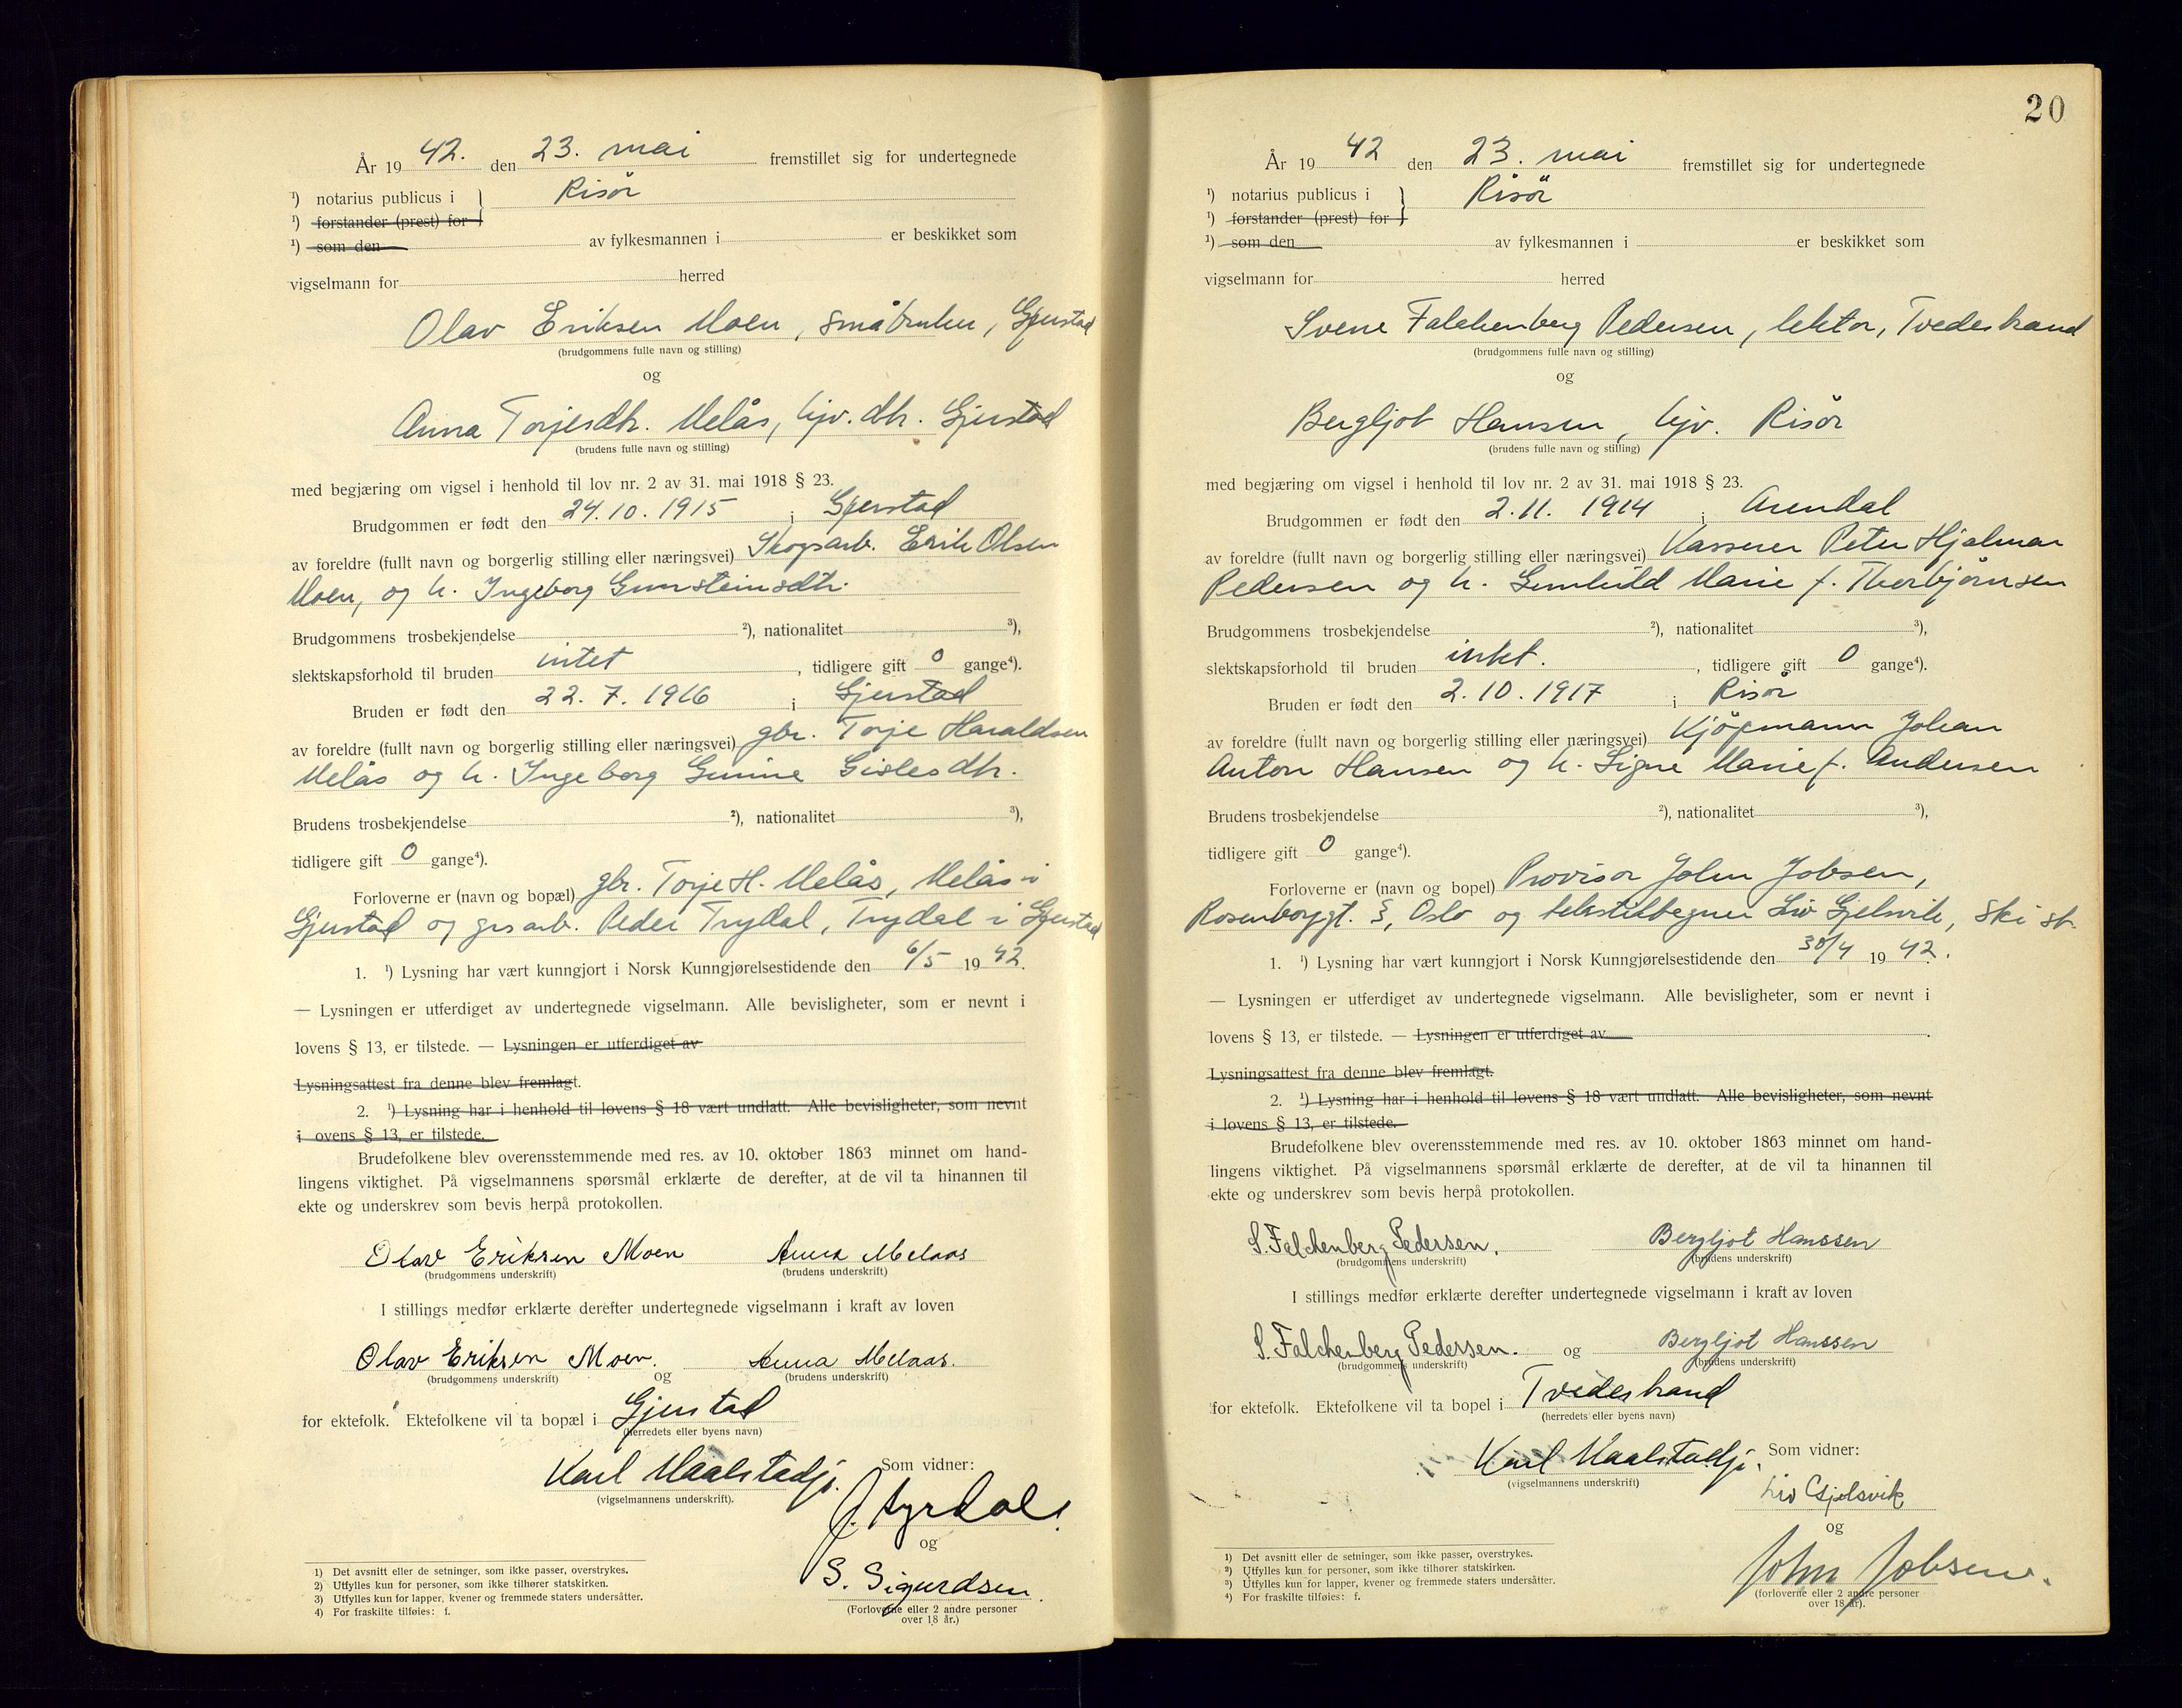 År 19 42. den 23. mai fremstillet sig for undertegnede
¹) notarius publicus i } Risör
¹) forstander (prest) for
¹) som den av fylkesmannen i er beskikket som
vigselmann for herred
Olav Eriksen Moen, småbruker, Gjerstad
(brudgommens fulle navn og stilling)
og
Anna Torjesdtr. Melås, hjv. dtr. Gjerstad
(brudens fulle navn og stilling)
med begjæring om vigsel i henhold til lov nr. 2 av 31. mai 1918 § 23.
Brudgommen er født den 24.10.1915 i Gjerstad
av foreldre (fullt navn og borgerlig stilling eller næringsvei) Skogsarb. Erik Olsen
Moen, og h. Ingeborg Gunsteinsdtr.
Brudgommens trosbekjendelse ²), nationalitet ³),
slektskapsforhold til bruden intet, tidligere gift 0 gange⁴).
Bruden er født den 22.7.1916 i Gjerstad
av foreldre (fullt navn og borgerlig stilling eller næringsvei) gbr. Torje Haraldsen
Melås og h. Ingeborg Gunine Gislesdtr.
Brudens trosbekjendelse ²), nationalitet ³),
tidligere gift 0 gange⁴).
Forloverne er (navn og bopæl) gbr. Torje H. Melås, Melås i
Gjerstad og grsarb. Peder Trydal, Trydal i Gjerstad
1. ¹) Lysning har vært kunngjort i Norsk Kunngjørelsestidende den 6/5 19 42.
— Lysningen er utferdiget av undertegnede vigselmann. Alle bevisligheter, som er nevnt i
lovens § 13, er tilstede. — Lysningen er utferdiget av
Lysningsattest fra denne blev fremlagt.
2. ¹) Lysning har i henhold til lovens § 18 vært undlatt. Alle bevisligheter, som nevnt
i ovens § 13, er tilstede.
Brudefolkene blev overensstemmende med res. av 10. oktober 1863 minnet om hand-
lingens viktighet. På vigselmannens spørsmål erklærte de derefter, at de vil ta hinannen til
ekte og underskrev som bevis herpå protokollen.
Olav Eriksen Moen Anna Melaas
(brudgommens underskrift) (brudens underskrift)
I stillings medfør erklærte derefter undertegnede vigselmann i kraft av loven
Olav Eriksen Moen. og Anna Melaas.
(brudgommens underskrift) (brudens underskrift)
for ektefolk. Ektefolkene vil ta bopæl i Gjerstad
(herredets eller byens navn)
Karl Maalstadjr. Som vidner:
(vigselmannens underskrift).
og
S. Sigurdsen
(Forloverne eller 2 andre personer
over 18 år.)
1) Det avsnitt eller de setninger, som ikke passer, overstrykes.
2) Utfylles kun for personer, som ikke tilhører statskirken.
3) Utfylles kun for lapper, kvener og fremmede staters undersåtter.
4) For fraskilte tilføies: f.
20
År 19 42 den 23. mai fremstillet sig for undertegnede
¹) notarius publicus i } Risör
¹) forstander (prest) for
¹) som den av fylkesmannen i er beskikket som
vigselmann for herred
Svene Falchenberg Pedersen, lektor, Tvedestrand
(brudgommens fulle navn og stilling)
og
Bergljot Hansen, hjv. Risör
(brudens fulle navn og stilling)
med begjæring om vigsel i henhold til lov nr. 2 av 31. mai 1918 § 23.
Brudgommen er født den 2.11. 1914 i Arendal
av foreldre (fullt navn og borgerlig stilling eller næringsvei) Kasserer Peter Hjalmar
Pedersen og h. Gunhild Marie f. Thorbjörnsen
Brudgommens trosbekjendelse ²), nationalitet ³),
slektskapsforhold til bruden intet., tidligere gift 0 gange⁴).
Bruden er født den 2.10.1917 i Risör
av foreldre (fullt navn og borgerlig stilling eller næringsvei) Kjöpmann Johan
Anton Hansen og h. Signe Marie f. Andersen
Brudens trosbekjendelse ²), nationalitet ³),
tidligere gift 0 gange⁴).
Forloverne er (navn og bopel) Provisor John Jobsen,
Rosenborggt. 3, Oslo og tekstiltegner Liv Gjelsvik, Ski st.
1. ¹) Lysning har vært kunngjort i Norsk Kunngjørelsestidende den 30/4 19 42.
— Lysningen er utferdiget av undertegnede vigselmann. Alle bevisligheter, som er nevnt i
lovens § 13, er tilstede. — Lysningen er utferdiget av
Lysningsattest fra denne blev fremlagt.
2. ¹) Lysning har i henhold til lovens § 18 vært undlatt. Alle bevisligheter, som nevnt
i lovens § 13, er tilstede.
Brudefolkene blev overensstemmende med res. av 10. oktober 1863 minnet om hand-
lingens viktighet. På vigselmannens spørsmål erklærte de derefter, at de vil ta hinannen til
ekte og underskrev som bevis herpå protokollen.
S. Falchenberg Pedersen. Bergljot Hanssen
(brudgommens underskrift) (brudens underskrift)
I stillings medfør erklærte derefter undertegnede vigselmann i kraft av loven
S. Falchenberg Pedersen. og Bergljot Hanssen
(brudgommens underskrift) (brudens underskrift)
for ektefolk. Ektefolkene vil ta bopel i Tvedestrand
(herredets eller byens navn)
Karl Maalstadjr. Som vidner:
(vigselmannens underskrift)
Liv Gjelsvik
og
John Jobsen.
(forloverne eller 2 andre personer
over 18 år).
1) Det avsnitt eller de setninger, som ikke passer, overstrykes.
2) Utfylles kun for personer, som ikke tilhører statskirken.
3) Utfylles kun for lapper, kvener og fremmede staters undersåtter.
4) For fraskilte tilføies: f.